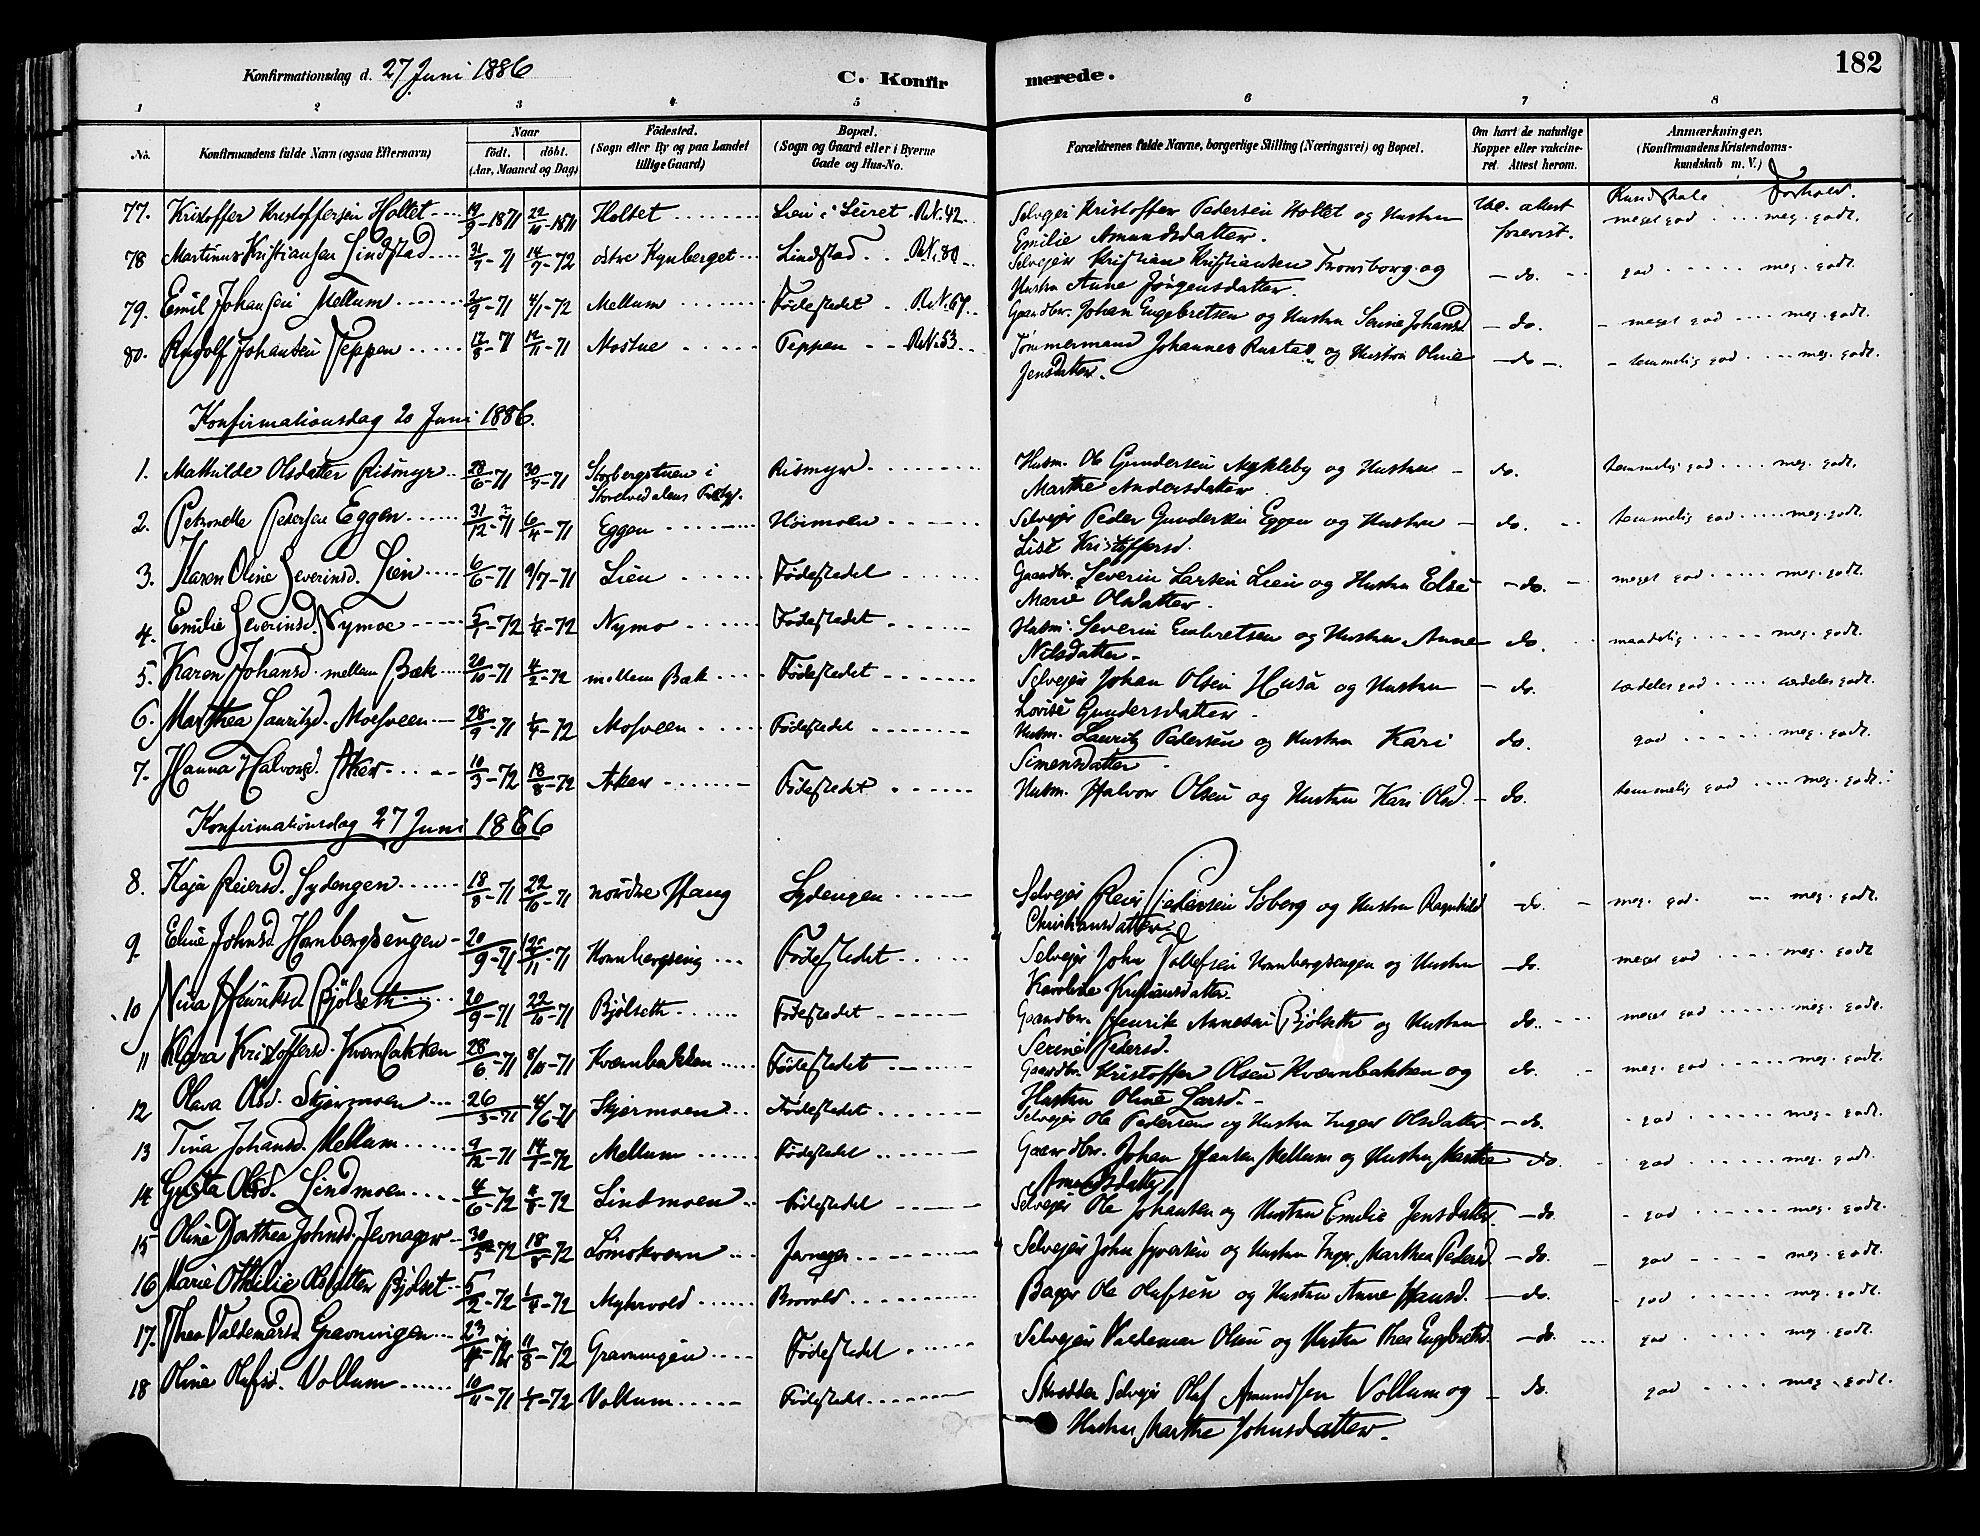 Konfirmationsdag d. 27 Juni 1886
C. Konfir
merede.
182
1 2 3 4 5 6 7 8
No.
Konfirmandens fulde Navn (ogsaa Efternavn)
Naar
født. døbt.
(Aar, Maaned og Dag)
Födested.
(Sogn eller By og paa Landet
tillige Gaard)
Bopæl.
(Sogn og Gaard eller i Byerne
Gade og Hus-No.
Forældrenes fulde Navne, borgerlige Stilling (Næringsvei) og Bopæl.
Om havt de naturlige
Kopper eller vakcine-
ret. Attest herom.
Anmærkninger.
(Konfirmandens Kristendoms-
kundskab m. V.)
Kundskab Forhold.
77. Kristoffer Kristoffersen Holtet 19/9-1871 22/10-1871 Holtet Lien i Luret R.N.42. Selveier Kristoffer Pedersen Holtet og Hustru Vac. attest meget god meg. godt.
Emilie Amundsdatter. forevist.
78 Martinus Kristiansen Lindstad 31/7-71 14/7-72 østre Kynberget Lindstad R.N.80 Selveier Kristian Kristiansen Tronsborg og do. god meg. godt.
Hustru Anne Jørgensdatter.
79. Emil Johansen Mellum 2/9-71 4/1-72 Mellum Fødestedet R.N.67. Gaardbr. Johan Engebretsen og Hustru Serine Johansd do. meget god meg. godt.
80. Rudolf Johansen Teppen 17/8-71 12/11-71 Mostue Teppen R.N.53 Tømmermand Johannes Rustad og Hustru Oline do temmelig god meg. godt.
Jensdatter.
Konfirmationsdag 20 Juni 1886.
1. Mathilde Olsdatter Rismyr 28/6-71 30/7-71 Storbergstuen i Rismyr Husm. Ole Gundersen Mykleby og Hustru do. temmelig god meg. godt.
Storelvedalens Prstgj. Marthe Andersdatter
2. Petronelle Pedersen Eggen 31/12-71 6/4-71 Eggen Høimoen Selveier Peder Gundersen Eggen og Hustru do. temmelig god meg. godt.
Lise Kristoffersd.
3. Karen Oline Severinsd. Lien 6/6-71 9/7-71 Lien Fødestedet Gaardbr. Severin Larsen Lien og Hustru Else do. meget god meg. godt.
Marie Olsdatter.
4. Emilie Severinsd. Nymoe 5/1-72 1/4-72 Nymo Fødestedet Husm. Severin Embretsen og Hustru Anne do. maadelig meg. godt.
Nilsdatter
5. Karen Johansd mellem Bæk 20/10-71 4/2-72 mellem Bæk Fødestedet Selveier Johan Olsen Husa og Hustru do. særdeles god særdeles godt.
Lovise Gundersdatter
6. Marthea Lauritzd. Mosveen 28/9-71 1/4-72 Mosveen Fødestedet Husm. Lauritz Pedersen og Hustru Kari do. god meg. godt.
Simensdatter
7. Hanna Halvorsd. Aker 10/3-72 18/8-72 Aker Fødestedet Husm. Halvor Olsen og Hustru Kari Olsd. do. temmelig god meg. godt.
Konfirmationsdag 27 Juni 1886
8. Kaja Reiersd. Sydengen 18/8-71 22/10-71 nordre Hang Sydengen Selveier Reier Pedersen Søberg og Hustru Ragnhild do. meg. god. meg. godt.
Christiansdatter
9. Eline Johnsd Hornbergsengen 20/9-71 /11-71 Hornbergseng Fødestedet Selveier John Tollefsen Hornbergsengen og Hustru do. meget god meg. godt
Karoline Kristiansdatter
10 Nina Henriksd Bjølseth 20/9-71 22/10-71 Bjølseth Fødestedet Gaardbr. Henrik Arnesen Bjølseth og Hustru do. meget god meg. godt.
Serine Pedersd.
11 Klara Kristoffersd. Kværnbakken 28/6-71 8/10-71 Kværnbakken Fødestedet Gaardbr Kristoffer Olsen Kværnbakken og do. meg. god meg. godt.
Hustru Oline Larsd.
12 Olava Olsd. Skjærmoen 26/3-71 4/6-71 Skjermoen Fødestedet Selveier Ole Pedersen og Hustru Inger Olsdatter do. god meg. godt.
13 Tina Johansd. Mellum 9/12-71 14/7-72 Mellum Fødestedet Gaardbr. Johan Hansen Mellum og Hustru Marthe do. god meg. godt.
Amundsdatter
14 Gusta Olsd. Lindmoen 4/6-72 4/8-72 Lindmoen Fødestedet Selveier Ole Johansen og Hustru Emilie Jensdatter do. god meg. godt.
15 Oline Dorthea Johnsd. Jevnager 30/3-72 18/8-72 Lømokværn Jevnager Selveier John Syversen og Hustru Ingr. Marthea Pedersd. do. god meg. godt.
16 Marie Othilie Olsdatter Bjølset 5/2-72 1/4-72 Myhrvold Brovold Bager Ole Olafsen og Hustru Anne Hansd. do. god meg. godt.
17. Thea Valdemarsd Gravningen 23/4-72 11/8-72 Gravningen Fødestedet Selveier Valdemar Olsen og Hustru Thea Engebretsd. do. god meg. godt.
18 Oline Olafsd. Vollum 10/11-71 1/4-72 Vollum Fødestedet Skrædder Selveier Olaf Amundsen Vollum og do. god meg. godt.
Hustru Marthe Johnsdatter.